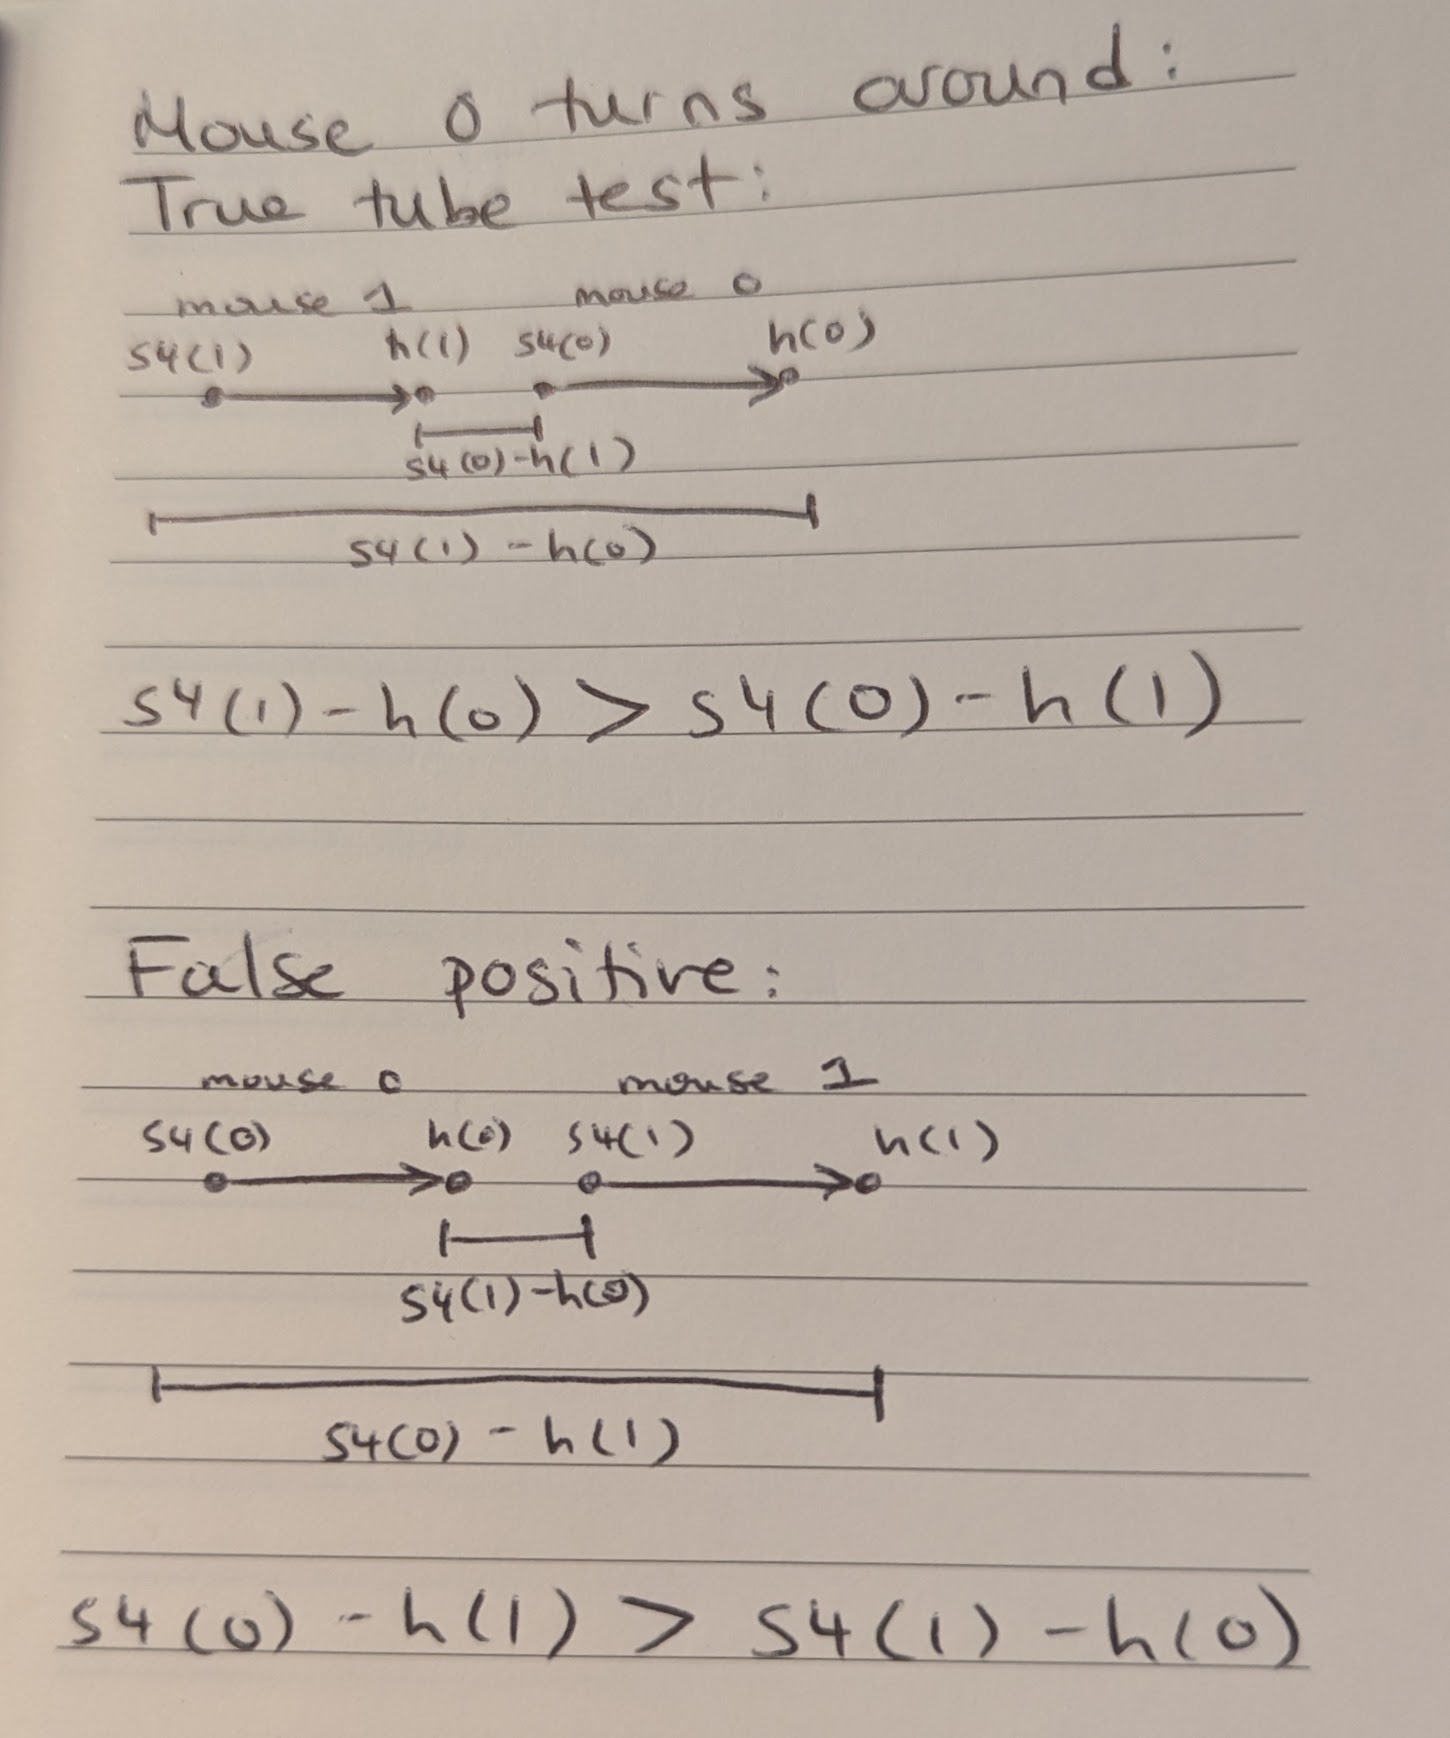 Mouse 0 turns around:
True tube test:
mouse 1 mouse 0
s4(1) h(1) s4(0) h(0)
s4(0)-h(1)
s4(1) - h(0)
s4(1) - h(0) > s4(0) - h(1)
False positive:
mouse 0 mouse 1
s4(0) h(0) s4(1) h(1)
s4(1)-h(0)
s4(0) - h(1)
s4(0) - h(1) > s4(1) - h(0)